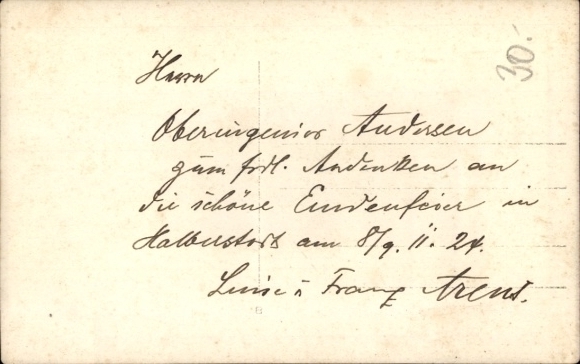 30.-
Herrn
Oberingenior Andersen
zum frdl. Andenken an
die schöne Eindenfeier in
Halberstadt am 8/9. II. 24.
Luise u Franz Arens.